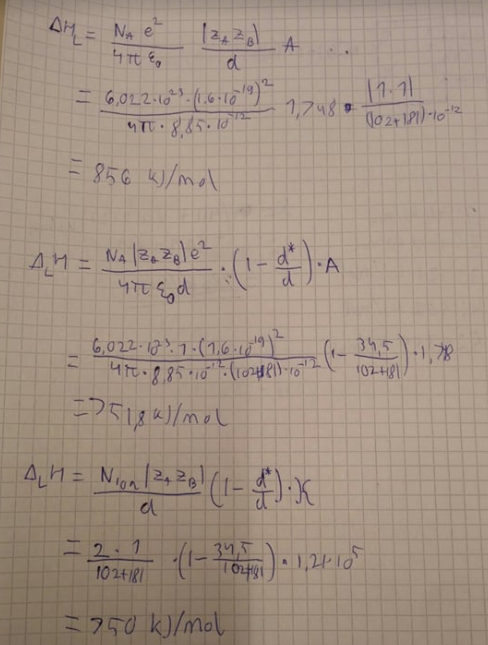 ΔH_L = N_A e² / 4πε₀ |z_A z_B| / d A ...
= 6,022·10²³·(1.6·10⁻¹⁹)² / 4π·8,85·10⁻¹² 1,748· |1·1| / (102+181)·10⁻¹²
= 856 kJ/mol
Δ_L H = N_A |z_A z_B| e² / 4πε₀ d · (1 - d* / d)·A
= 6,022·10²³·1·(1,6·10⁻¹⁹)² / 4π·8,85·10⁻¹²·(102+181)·10⁻¹² (1 - 34,5 / 102+181)·
= 751,8 kJ/mol
Δ_L H = N_ion |z_A z_B| / d (1 - d* / d)·K
= 2·1 / 102+181 ·(1 - 34,5 / 102+181)·1,21·10⁵
= 750 kJ/mol